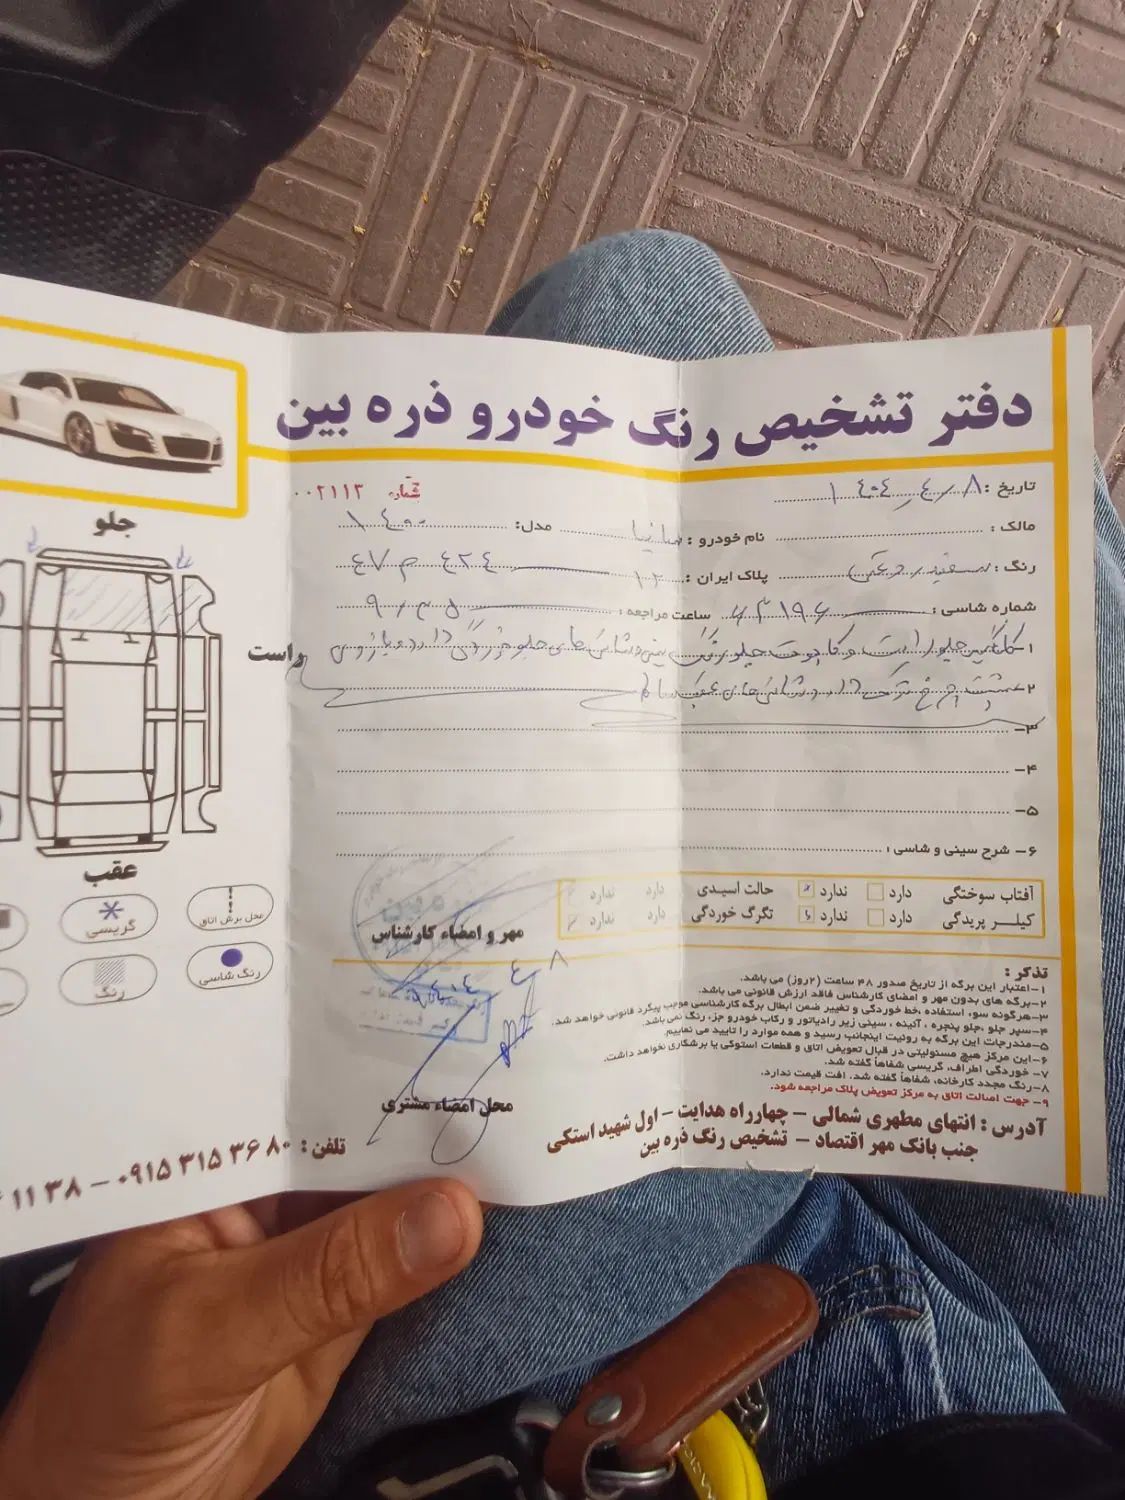 دفتر تشخیص رنگ خودرو ذره بین
تاریخ : ۱۴۰۴/۴/۸
شماره ۰۰۲۱۱۳
مالک : نام خودرو : ساینا مدل: ۱۴۰۰
رنگ : سفید روغنی پلاک ایران : ۱۲ ۴۲۴ م ۴۷
شماره شاسی : ساعت مراجعه :
۱- گلگیر جلو راست و کاپوت جلو رنگ سینی و شاسی های جلو خوردگی دارد
۲- دارد شاسی های عقب سالم
۳-
۴-
۵-
۶- شرح سینی و شاسی :
آفتاب سوختگی دارد ندارد حالت اسیدی دارد ندارد
کیلر پریدگی دارد ندارد تگرگ خوردگی دارد ندارد
مهر و امضاء کارشناس
تذکر :
۱-اعتبار این برگه از تاریخ صدور ۴۸ ساعت (۲روز) می باشد.
۲-برگه های بدون مهر و امضای کارشناس فاقد ارزش قانونی می باشد.
۳-هرگونه سوء استفاده ،خط خوردگی و تغییر ضمن ابطال برگه کارشناسی موجب پیگرد قانونی خواهد شد.
۴-سپر جلو ،جلو پنجره ، آئینه ، سینی زیر رادیاتور و رکاب خودرو جزء رنگ نمی باشد.
۵-مندرجات این برگه به رویت اینجانب رسید و همه موارد را تایید می نمایم.
۶-این مرکز هیچ مسئولیتی در قبال تعویض اتاق و قطعات استوکی یا برشکاری نخواهد داشت.
۷- خوردگی اطراف، گریسی شفاهاً گفته شد.
۸-رنگ مجدد کارخانه، شفاهاً گفته شد. افت قیمت ندارد.
۹- جهت اصالت اتاق به مرکز تعویض پلاک مراجعه شود.
محل امضاء مشتری
آدرس : انتهای مطهری شمالی – چهارراه هدایت – اول شهید استکی
جنب بانک مهر اقتصاد – تشخیص رنگ ذره بین
تلفن : ۰۹۱۵ ۳۱۵ ۳۶ ۸۰ – ۱۱ ۳۸
جلو
راست
عقب
محل برش اتاق
گریسی
رنگ شاسی
رنگ